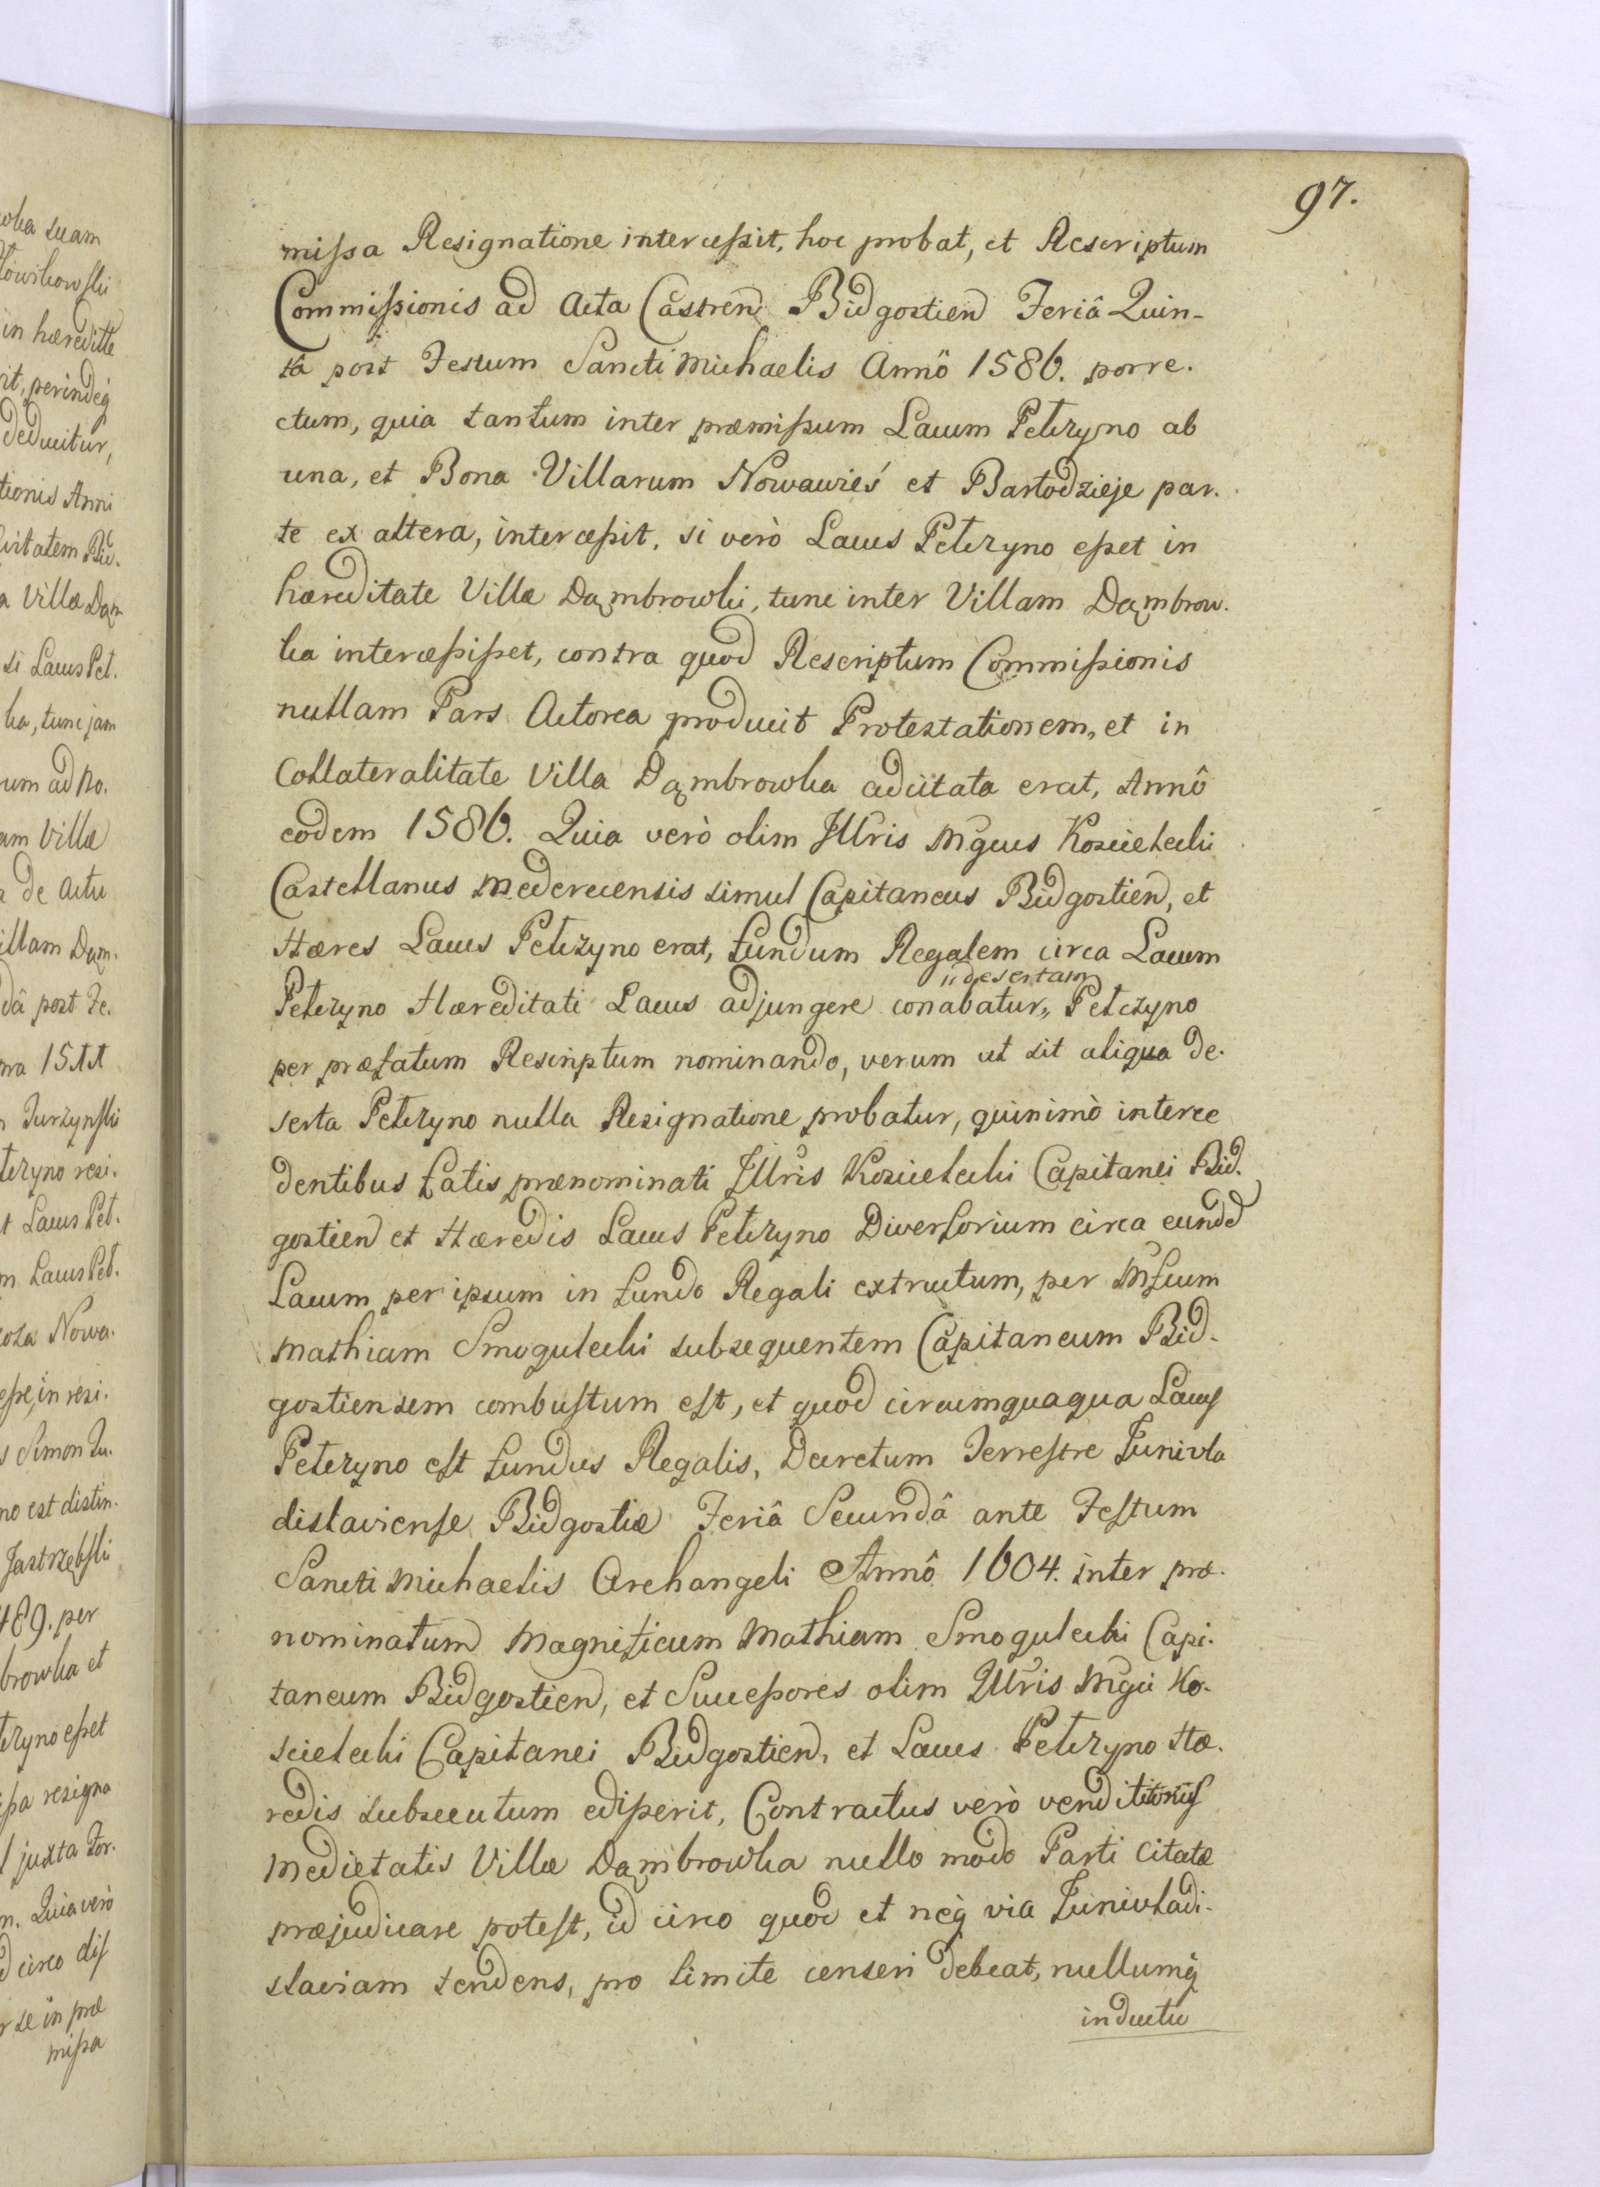 97.
missa Resignatione intercessit, hoc probat, et Rescriptum
Commissionis ad Acta Castren Bidgostien Feriâ Quin-
tâ post Festum Sancti Michaelis Annô 1586. porre-
ctum, quia tantum inter præmissum Lacum Petczyno ab
una, et Bona Villarum Nowawieś et Bartodzieje par-
te ex altera, intercessit, si verò Lacus Petczyno esset in
hæreditate Villæ Dąmbrowki, tunc inter Villam Dąmbrow-
ka intercessisset, contra quod Rescriptum Commissionis
nullam Pars Actorea producit Protestationem, et in
Collateralitate Villa Dąmbrowka adcitata erat, Annô
eodem 1586. Quia verò olim Illris Mgcus Koscielecki
Castellanus Medereceensis simul Capitaneus Bidgostien, et
Hæres Lacus Petczyno erat, fundum Regalem circa Lacum
desertam
Petczyno Hæreditati Lacus adjungere conabatur, Petczyno
per præfatum Rescriptum nominando, verum ut sit aliqua de-
serta Petczyno nulla Resignatione probatur, quinimò interce
dentibus fatis prænominati Illris Koscielecki Capitanei Bid-
gostien et Hæredis Lacus Petczyno Diversorium circa eundd
Lacum per ipsum in fundo Regali extructum, per Mfcum
Mathiam Smogulecki subsequentem Capitaneum Bid-
gostiensem combustum est, et quod circumquaqua Lacus
Petczyno est fundus Regalis, Decretum Terrestre Junivla
dislaviense Bidgostiæ Feriâ Secundâ ante Festum
Sancti Michaelis Archangeli Annô 1604. inter præ-
nominatum Magnificum Mathiam Smogulecki Capi-
taneum Bidgostien, et Successores olim Illris Mgci Ko-
scielecki Capitanei Bidgostien, et Lacus Petczyno Hæ-
redis subsecutum edisserit, Contractus verò venditionis
Medietatis Villæ Dąmbrowka nullo modo Parti Citatæ
præjudicare potest, id circo quod et neq via Junivladi-
slaviam tendens, pro limite censeri debeat, nullumq
inductu